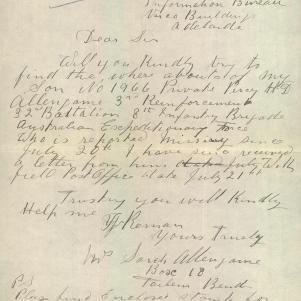 Information Bureau
Verco Building
Adelaide
Dear Sir
Will you Kindly try to
find the where abouts of my
Son No 1966 Private Percy
Allengame 3rd Reinforcement
32nd Battalion 8th Infantry Brigade
Australian Expeditionary Force
who is reported missing since
July 20th I have since received
a letter from him July with
field Post Office date July 21st
Trusting you will Kindly
Help me
I Remain
Yours Truely
Mrs Sarah Allengame
Box 18
Tailem Bend
P.S
Please find Enclosed Stamp for